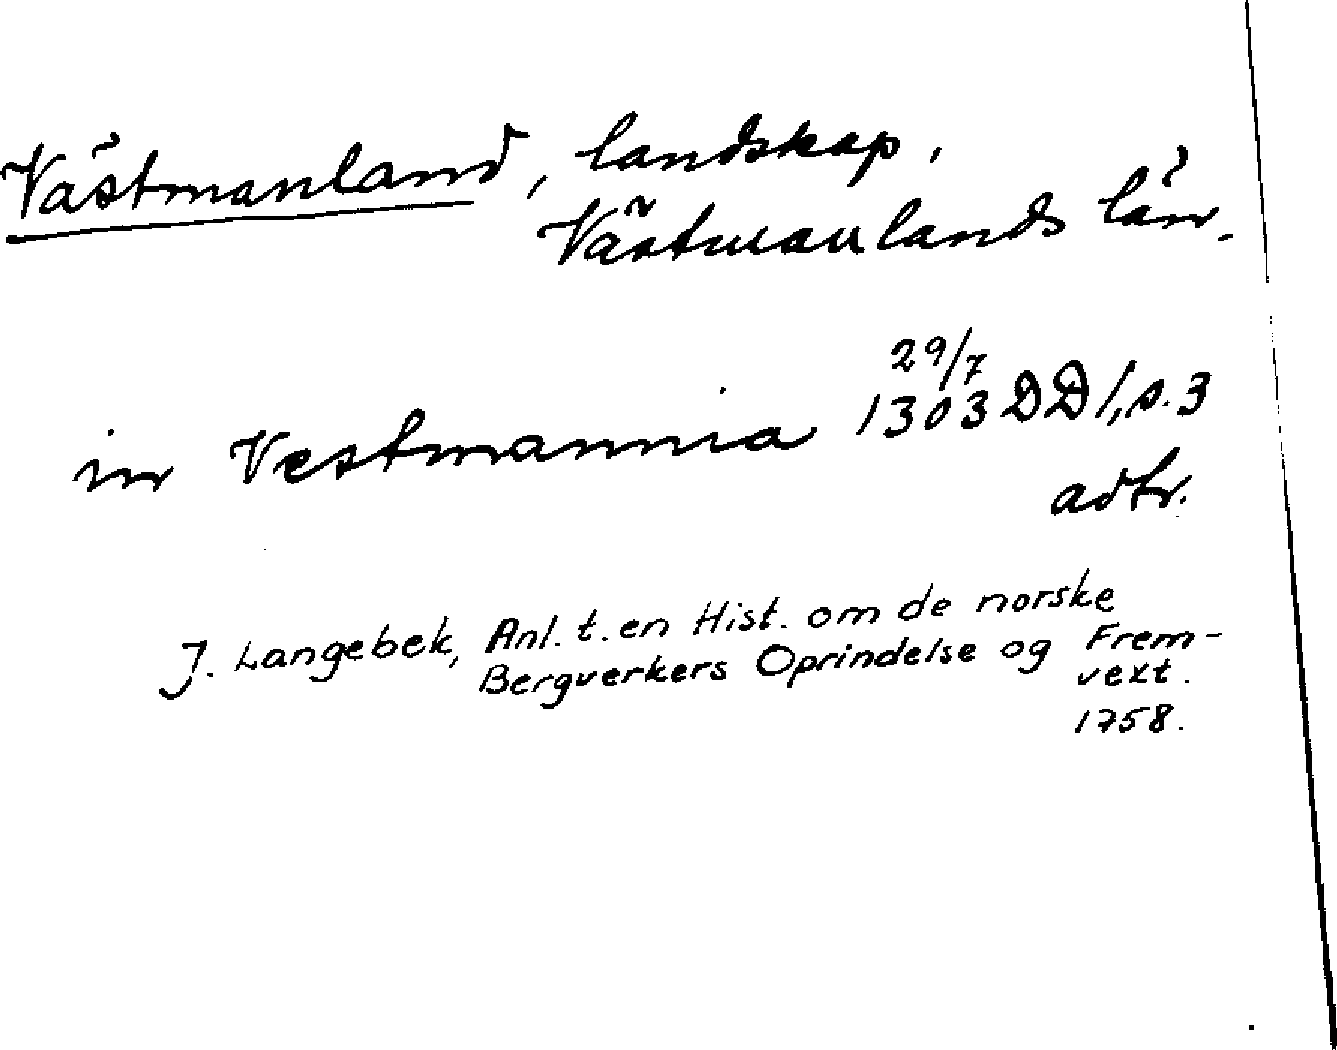 Västmanland, landskap,
Västmanlands län.
in Vestmannia 29/7 1303 DD 1, s. 3
avtr.
J. Langebek, Anl. t. en Hist. om de norske
Bergverkers Oprindelse og Frem-
vext.
1758.